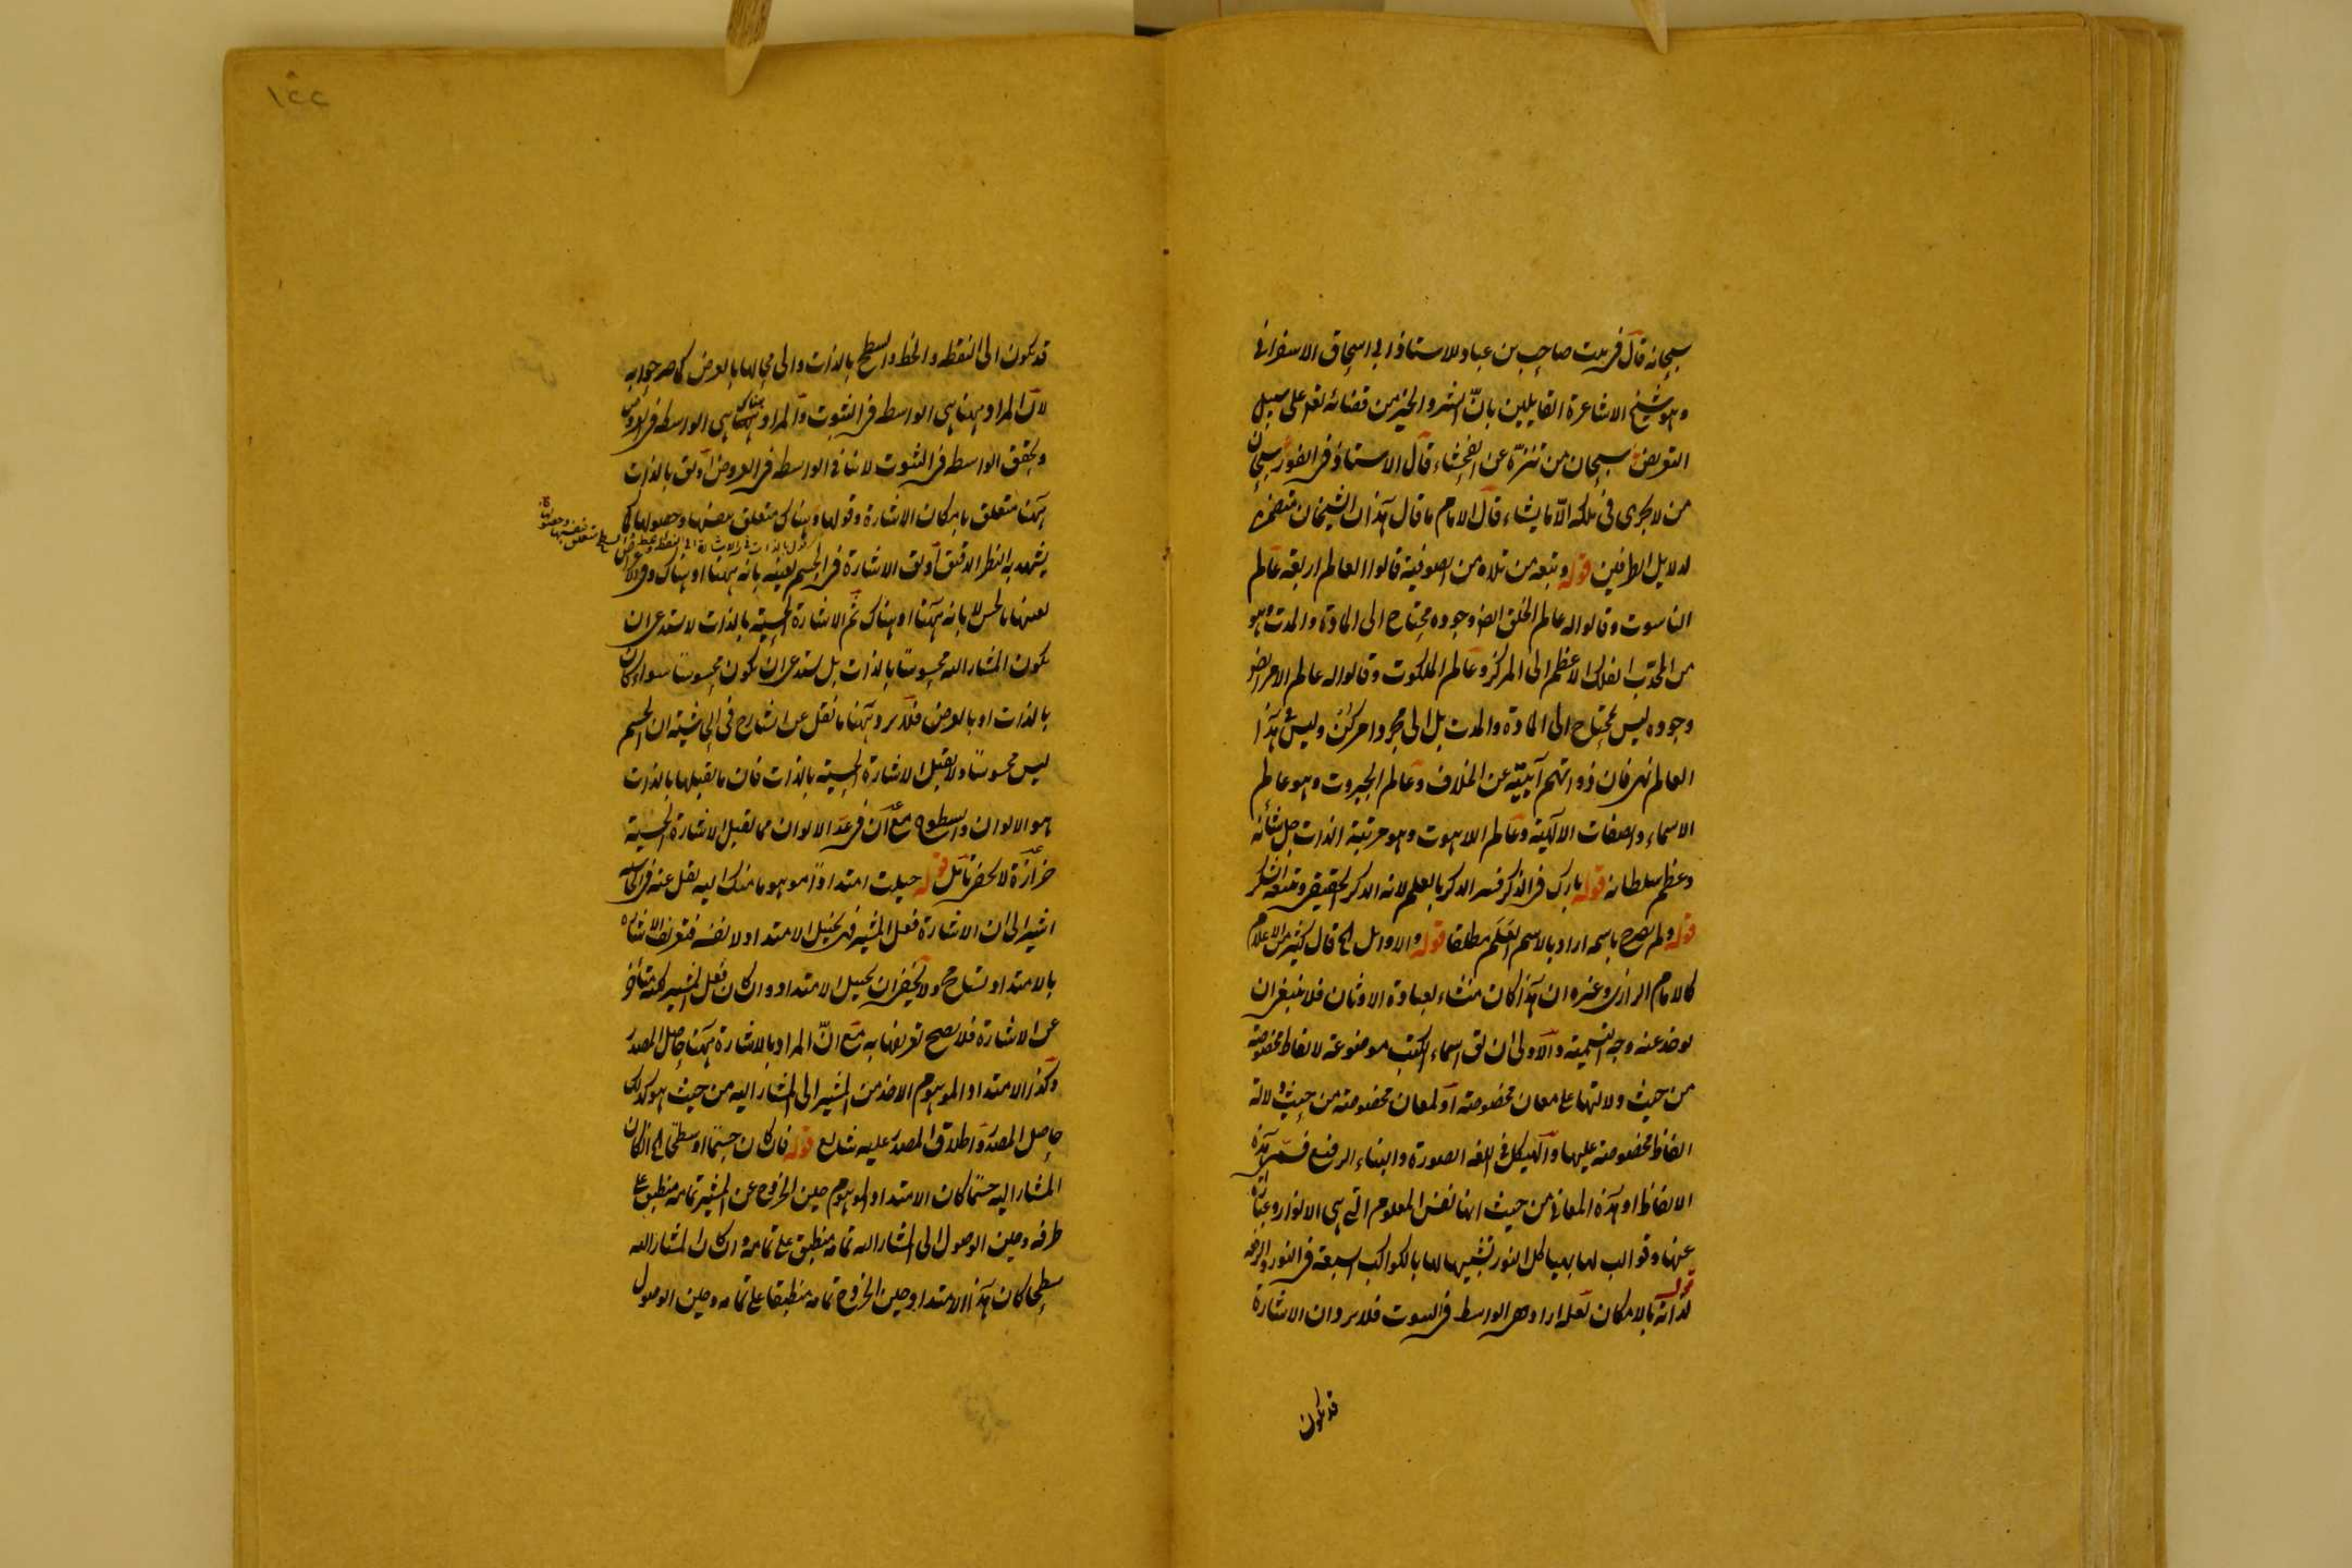 سبحانه قال في بيت صاحب بن عباد للاستاذ ابي اسحاق الاسفرايني
وهو شيخ الاشاعرة القايلين بانّ الشر والخير من قضائه تعالى على سبيل
التعريض سبحان من تنزّه عن الفحشاء قال الاستاذ في الفور سبحان
من لا يجري في ملكه الّا ما يشاء قال الامام ما قال هذان الشيخان متضمن
لدلايل الطرفين قوله وتبعه من تلاه من الصوفية قالوا العالم اربعة عالم
الناسوت وقالوا له عالم الخلق ايضا وجوده محتاج الى المادة والمدت وهو
من المحدب الفلك الاعظم الى المركز وعالم الملكوت وقالوا له عالم الامر ايضا
وجوده ليس بمحتاج الى المادة والمدت بل الى مجرد امر كن وليس في هذا
العالم نهى فان ذواتهم آبيّة عن الخلاف وعالم الجبروت وهو عالم
الاسماء والصفات الالهية وعالم اللاهوت وهو مرتبة الذات جل شأنه
وعظم سلطانه قوله بارك في الذكر فسر الذكر بالعلم لانه الذكر الحقيقي وتتبعه الشكر
قوله ولم يصرح باسمه اراد بالاسم العَلَم مطلقا قوله والاوائل الخ قال كثير من الاعلام
كالامام الرازي وغيره ان هذا كان منشاء لعبادة الاوثان فلا ينبغي ان
يوخذ عنه وجه التسمية والاولى ان يق اسماء الكتب موضوعة لالفاظ مخصوصة
من حيث دلالتها على معان مخصوصة او لمعان مخصوصة من حيث دلالة
الفاظ مخصوصة عليها والهيكل في اللغة الصورة والبناء الرفيع فسمى هذه
الالفاظ او هذه المعاني من حيث انها نفس المعلوم التي هي الانوار وعبارة
عنها وقوالب لها بهياكل النور تشبيها لها بالكواكب السبعة في النور والرفعة
قوله لذاته بالامكان لعله اراد هي الواسطة في الثبوت فلا يرد ان الاشارة
قد يكون
قد يكون الى النقطه والخط والسطح بالذات والى محالها بالعرض كما صرحوا به
لان المراد ههنا هي الواسطه في الثبوت والمراد هناك هي الواسطه في العروض
وتحقق الواسطه في الثبوت لا ينافي الواسطه في العروض او يق بالذات
ههنا متعلق بامكان الاشارة وقولها وهناك متعلق بنفسها وحصولها كما
يشهد به النظر الدقيق او يق الاشارة في الجسم لعينه بانه ههنا او هناك وفي
لعينها بالحس لا بانه ههنا او هناك ثم الاشارة الحسية بالذات لا يستدعي ان
يكون المشار اليه محسوسا بالذات بل يستدعي ان يكون محسوسا سواء كان
بالذات او بالعرض فلا يرد ههنا ما نقل عن الشارح في الحاشية ان الجسم
ليس محسوسا ولا يقبل الاشارة الحسية بالذات فان ما يقبلها بالذات
هو الالوان والسطوح مع ان في عدّ الالوان مما يقبل الاشارة الحسية
حزازة لا يخفى تأمل قوله حيلت امتدادا موهوما منك اليه نقل عنه في الحاشية
اشير الى ان الاشارة فعل المشير في تخيل الامتداد لا نفسه فتعريف الاشارة
بالامتداد تسامح ولا يخفى ان تخيل الامتداد وان كان فعل المشير لكنه متأخر
عن الاشارة فلا يصح تعريفها به مع انّ المراد بالاشارة ههنا حاصل المصدر
وكذا الامتداد الموهوم الاخذ من المشير الى المشار اليه من حيث هو كذلك
حاصل المصدر واطلاق المصدر عليه شايع قوله فان كان جسما او سطحا الخ ان كان
المشار اليه جسما كان الامتداد الموهوم حين الخروج عن المشير تمامه منطبق على
طرفه وحين الوصول الى المشار اليه تمامه منطبق على تمامه وان كان المشار اليه
سطحا كان هذا الامتداد حين الخروج تمامه منطبقا على تمامه وحين الوصول